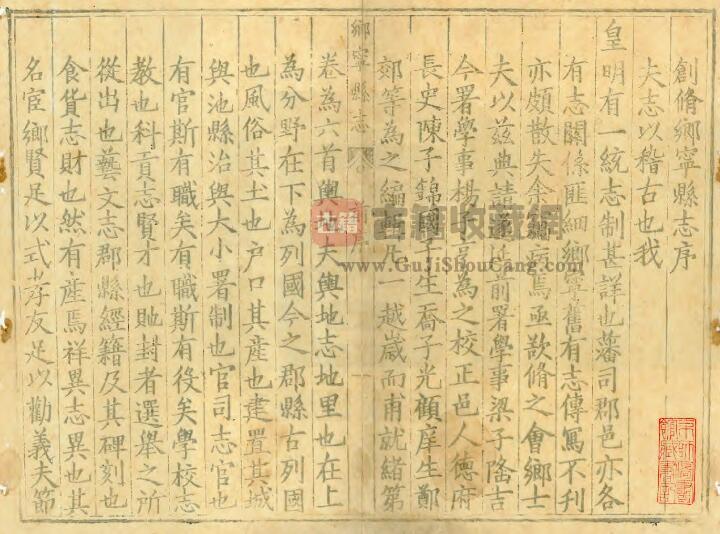 創脩鄉寧縣志序
夫志以稽古也我
皇明有一統志制甚詳也藩司郡邑亦各
有志關係匪細鄉寧舊有志傳寫不利
亦頗散失余竊病焉亟欲脩之會鄉士
夫以茲典請遂
前署學事梁子隆吉
今署學事楊子
為之校正邑人德府
長史陳子錦國子生喬子光顧庠生鄭
郊等為之編
凡一越歲而甫就緒第
卷為六首輿地夫輿地志地里也在上
為分野在下為列國今之郡縣古列國
也風俗其土也户口其產也建置其城
與池縣治與大小署制也官司志官也
有官斯有職矣有職斯有役矣學校志
教也科貢志賢才也貤封者選舉之所
從出也藝文志郡縣經籍及其碑刻也
食貨志財也然有產焉祥異志異也其
名宦鄉賢足以式孝友足以勸義夫節
鄉寧縣志
古籍
古籍收藏網
www.GuJiShouCang.com